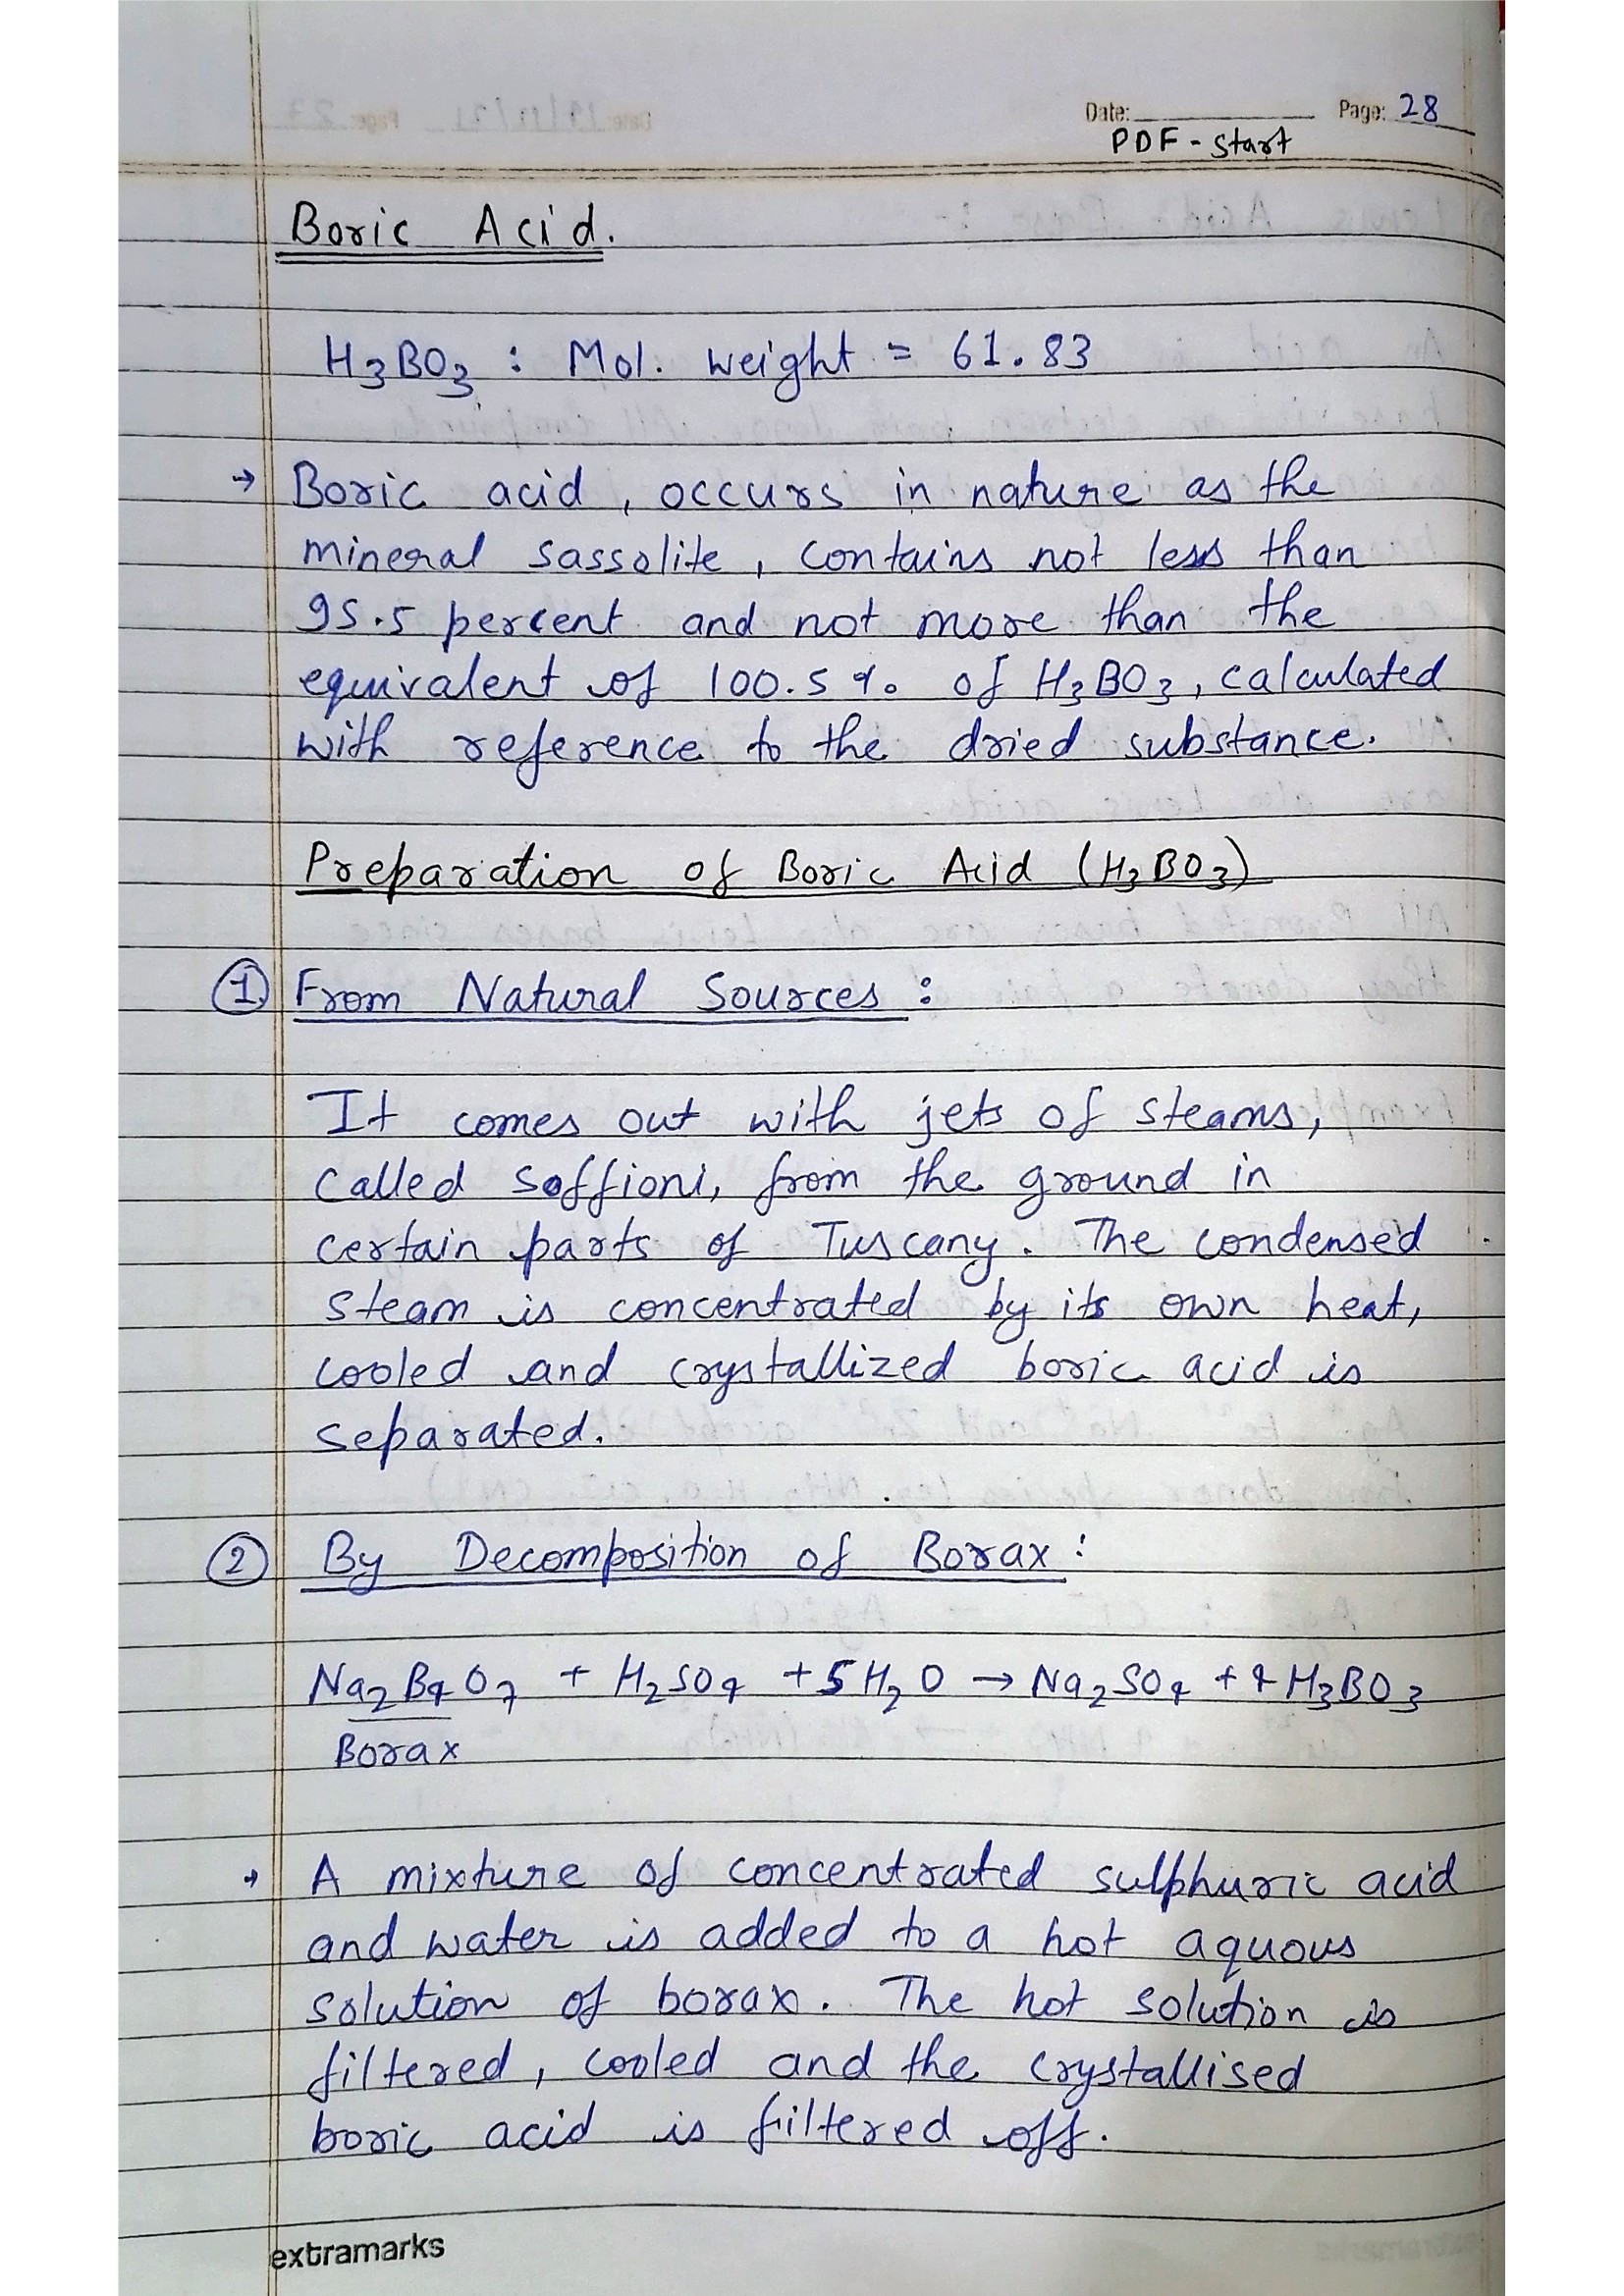 Date: Page: 28
PDF - Start
Boric Acid.
H3BO3 : Mol. weight = 61.83
→ Boric acid, occurs in nature as the
mineral sassolite, contains not less than
95.5 percent and not more than the
equivalent of 100.5 % of H3BO3, calculated
with reference to the dried substance.
Preparation of Boric Acid (H3BO3)
① From Natural Sources :
It comes out with jets of steams,
called soffioni, from the ground in
certain parts of Tuscany. The condensed
steam is concentrated by its own heat,
cooled and crystallized boric acid is
separated.
② By Decomposition of Borax :
Na2B4O7 + H2SO4 + 5H2O → Na2SO4 + 4H3BO3
Borax
→ A mixture of concentrated sulphuric acid
and water is added to a hot aquous
solution of borax. The hot solution is
filtered, cooled and the crystallised
boric acid is filtered off.
extramarks